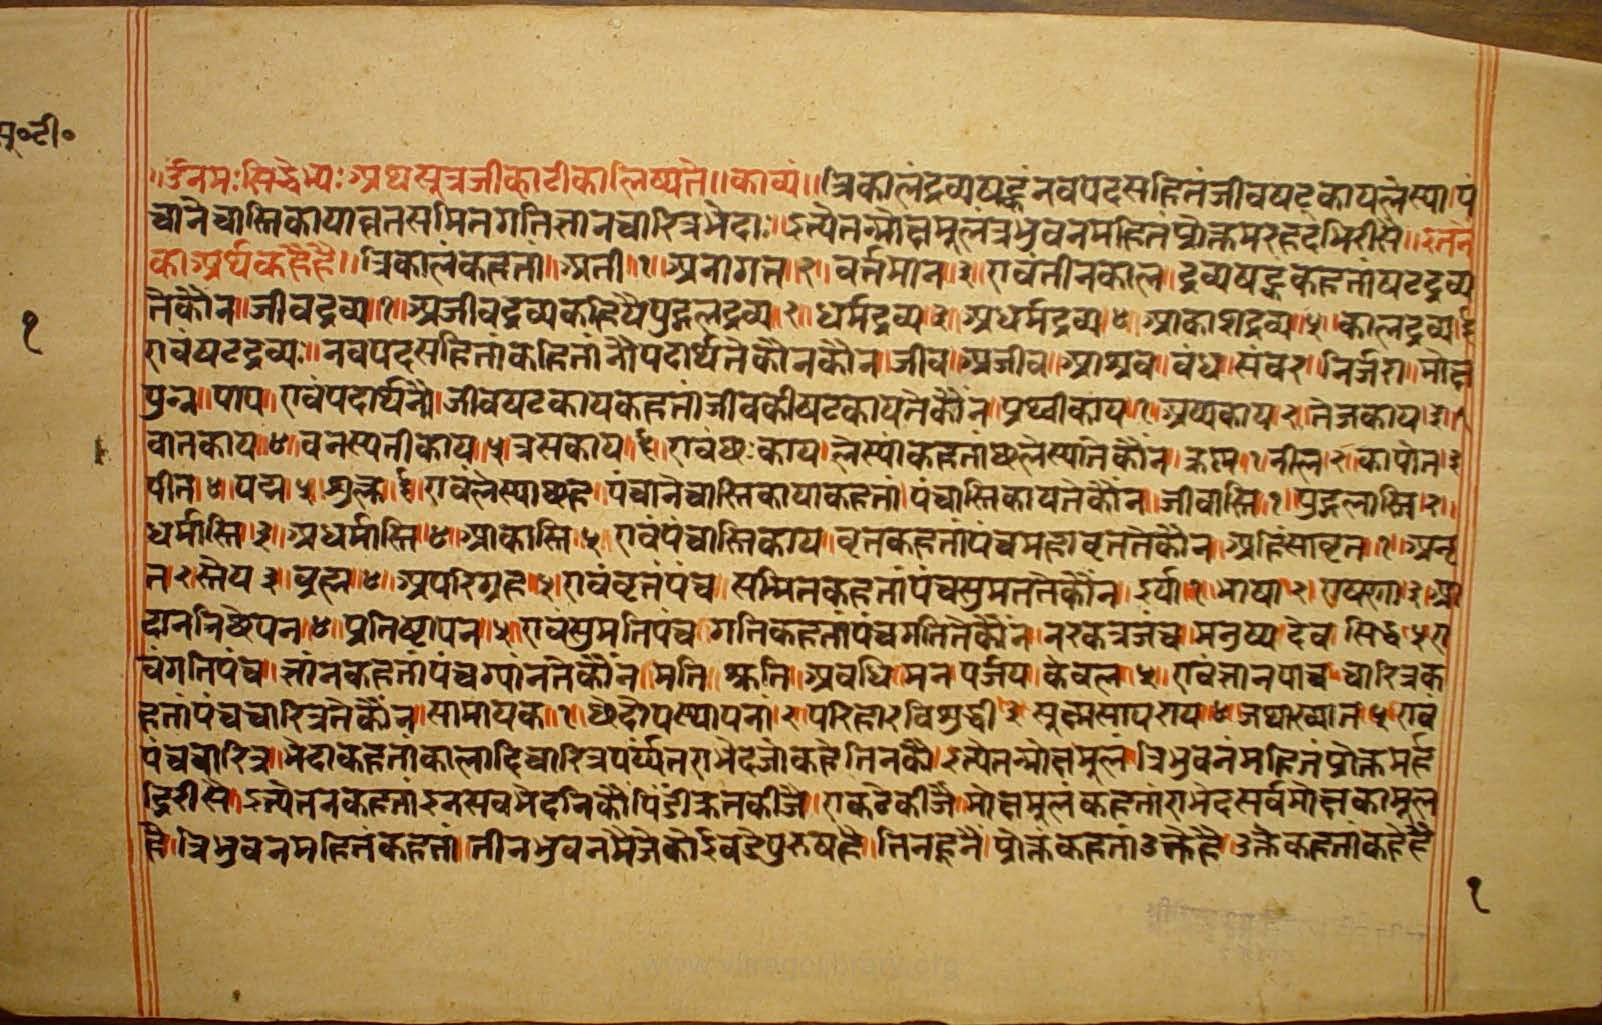 सू॰टी॰
॥ॐनमःसिद्धेभ्यःअथसुत्रजीकाटीकालिष्यते॥काव्यं॥त्रिकालंद्रव्यषट्कंनवपदसहितंजीवषट्कायलेस्या।पं
चानेचास्तिकायाव्रतसमितगतिज्ञानचारित्रभेदाः॥इत्येतन्मोक्षमुलंत्रभुवनमहितंप्रोक्तमरहदभिरीसै॥इतनें
काअर्थकहैहै॥त्रिकालंकहतां॥अती।१।अनागत।२।वर्तमान।३।एवंतीनकाल।द्रव्यषट्ककहतांषटद्रव्य
तेकौन॥जीवद्रव्य॥१॥अजीवद्रव्यकहियेपुद्गलद्रव्य।२।धर्मद्रव्य।३।अधर्मद्रव्य।४।आकाशद्रव्य।५।कालद्रव्य।६
एवंषटद्रव्यः॥नवपदसहितांकहितांनौपदार्थतेकौनकौन।जीव।अजीव।आश्रव।बंध।संवर।निर्जरा।मोक्ष
पुन्न।पाप।एवंपदार्थनौ।जीवषटकायकहतांजीवकीषटकायतेकौंन।प्रथ्वीकाय।१।अप्पकाय।२।तेजकाय।३।
वातकाय।४।वनस्पतीकाय।५।त्रसकाय।६।एवंछःकाय।लेस्याकहतांछलेस्यातेकौंन।क्रस्न।१।नील।२।कापोत।३
पीत।४।पद्म।५।शुल्क।६।एवंलेस्याछह।पंचानेचास्तिकायाकहतां।पंचास्तिकायतेकौंन।जीवास्ति।१।पुद्गलास्ति।२।
धर्मास्ति।३।अधर्मास्ति।४।आकास्ति।५।एवंपंचास्तिकाय।वृतकहतांपंचमहावृततेकौन।अहिंसावृत।१।अनृ
त।२स्तेय।३।ब्रह्म।४।अपरिग्रह।५।एवंवृतंपंच।सम्मितकहतांपंचसुमततेकौंन।इर्या।१।भाषा।२।एषणा।३।आ
दाननिछेपन।४।प्रतिष्टापन।५।एवंसुमतिपंच।गतिकहतांपंचगतितेकौंन।नरकत्रजंच।मनुष्य।देव।सिद्ध।५।ए
वंगतिपंच।ज्ञांनकहतांपंचग्यांनतेकौंन।मति।श्रुति।अवधि।मनपर्जय।केवल।५।एवंज्ञानपांच।चारित्रक
हतांपंचचारित्रतेकौंन।सामायक।१।छेदोपस्थापना।२।परिहारविशुद्धी।३।सुक्ष्मसांपराय।४।जथाख्यात।५।एवं
पंचचारित्र।भेदाकहतांकालादिचारित्रपर्य्यंतएभेदजोकहेतिनकौ।इत्येतन्मोक्षमुलं।त्रिभुवनंमहितंप्रोक्तमर्ह
द्भिरीसै।इत्येतनकहतां।इनसबभेदनिकौपिंडीक्रतकीजै।एकठेकीजै।मोक्षमुलंकहतांएभेदसर्वमोक्षकामुल
है।त्रिभुवनमहितंकहतां।तीनभुवनमैजेकोईबडेपुरुषहै।तिनहूनै।प्रोक्तंकहतांउक्तेहै।उक्तेकहतांकहेहै
१
१
www.vitragelibrary.org